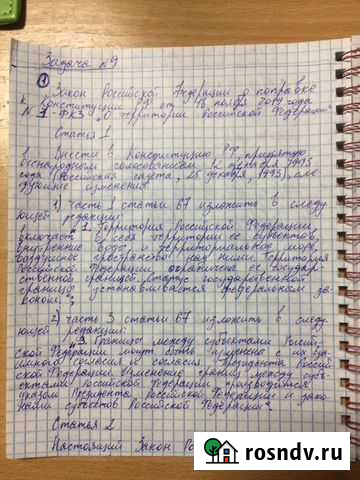 Задача №9
① Закон Российской Федерации о поправке
к Конституции РФ от 18 ноября 2019 года
N 1-ФКЗ „О территории Российской Федерации"
Статья 1
Внести в Конституцию РФ, принятую
всенародным голосованием 12 декабря 1993
года (Российская газета, 25 декабря, 1993), сле
дующие изменения:
1) часть 1 статьи 67 изложить в следу
ющей редакции:
„1. Территория Российской Федерации
включает в себя территории ее субъектов,
внутренние воды и территориальное море,
воздушное пространство над ними. Территория
Российской Федерации ограничена ее государ-
ственной границей. Статус государственной
границы устанавливается федеральным за-
коном";
2) часть 3 статьи 67 изложить в следу
ющей редакции:
„3. Границы между субъектами Россий-
ской Федерации могут быть изменены с их
взаимного согласия и согласия Президента Россий
ской Федерации. Изменение границ между субъ-
ектами Российской Федерации производится
указом Президента Российской Федерации и зако-
нами субъектов Российской Федерации".
Статья 2
Настоящий Закон
rosndv.ru